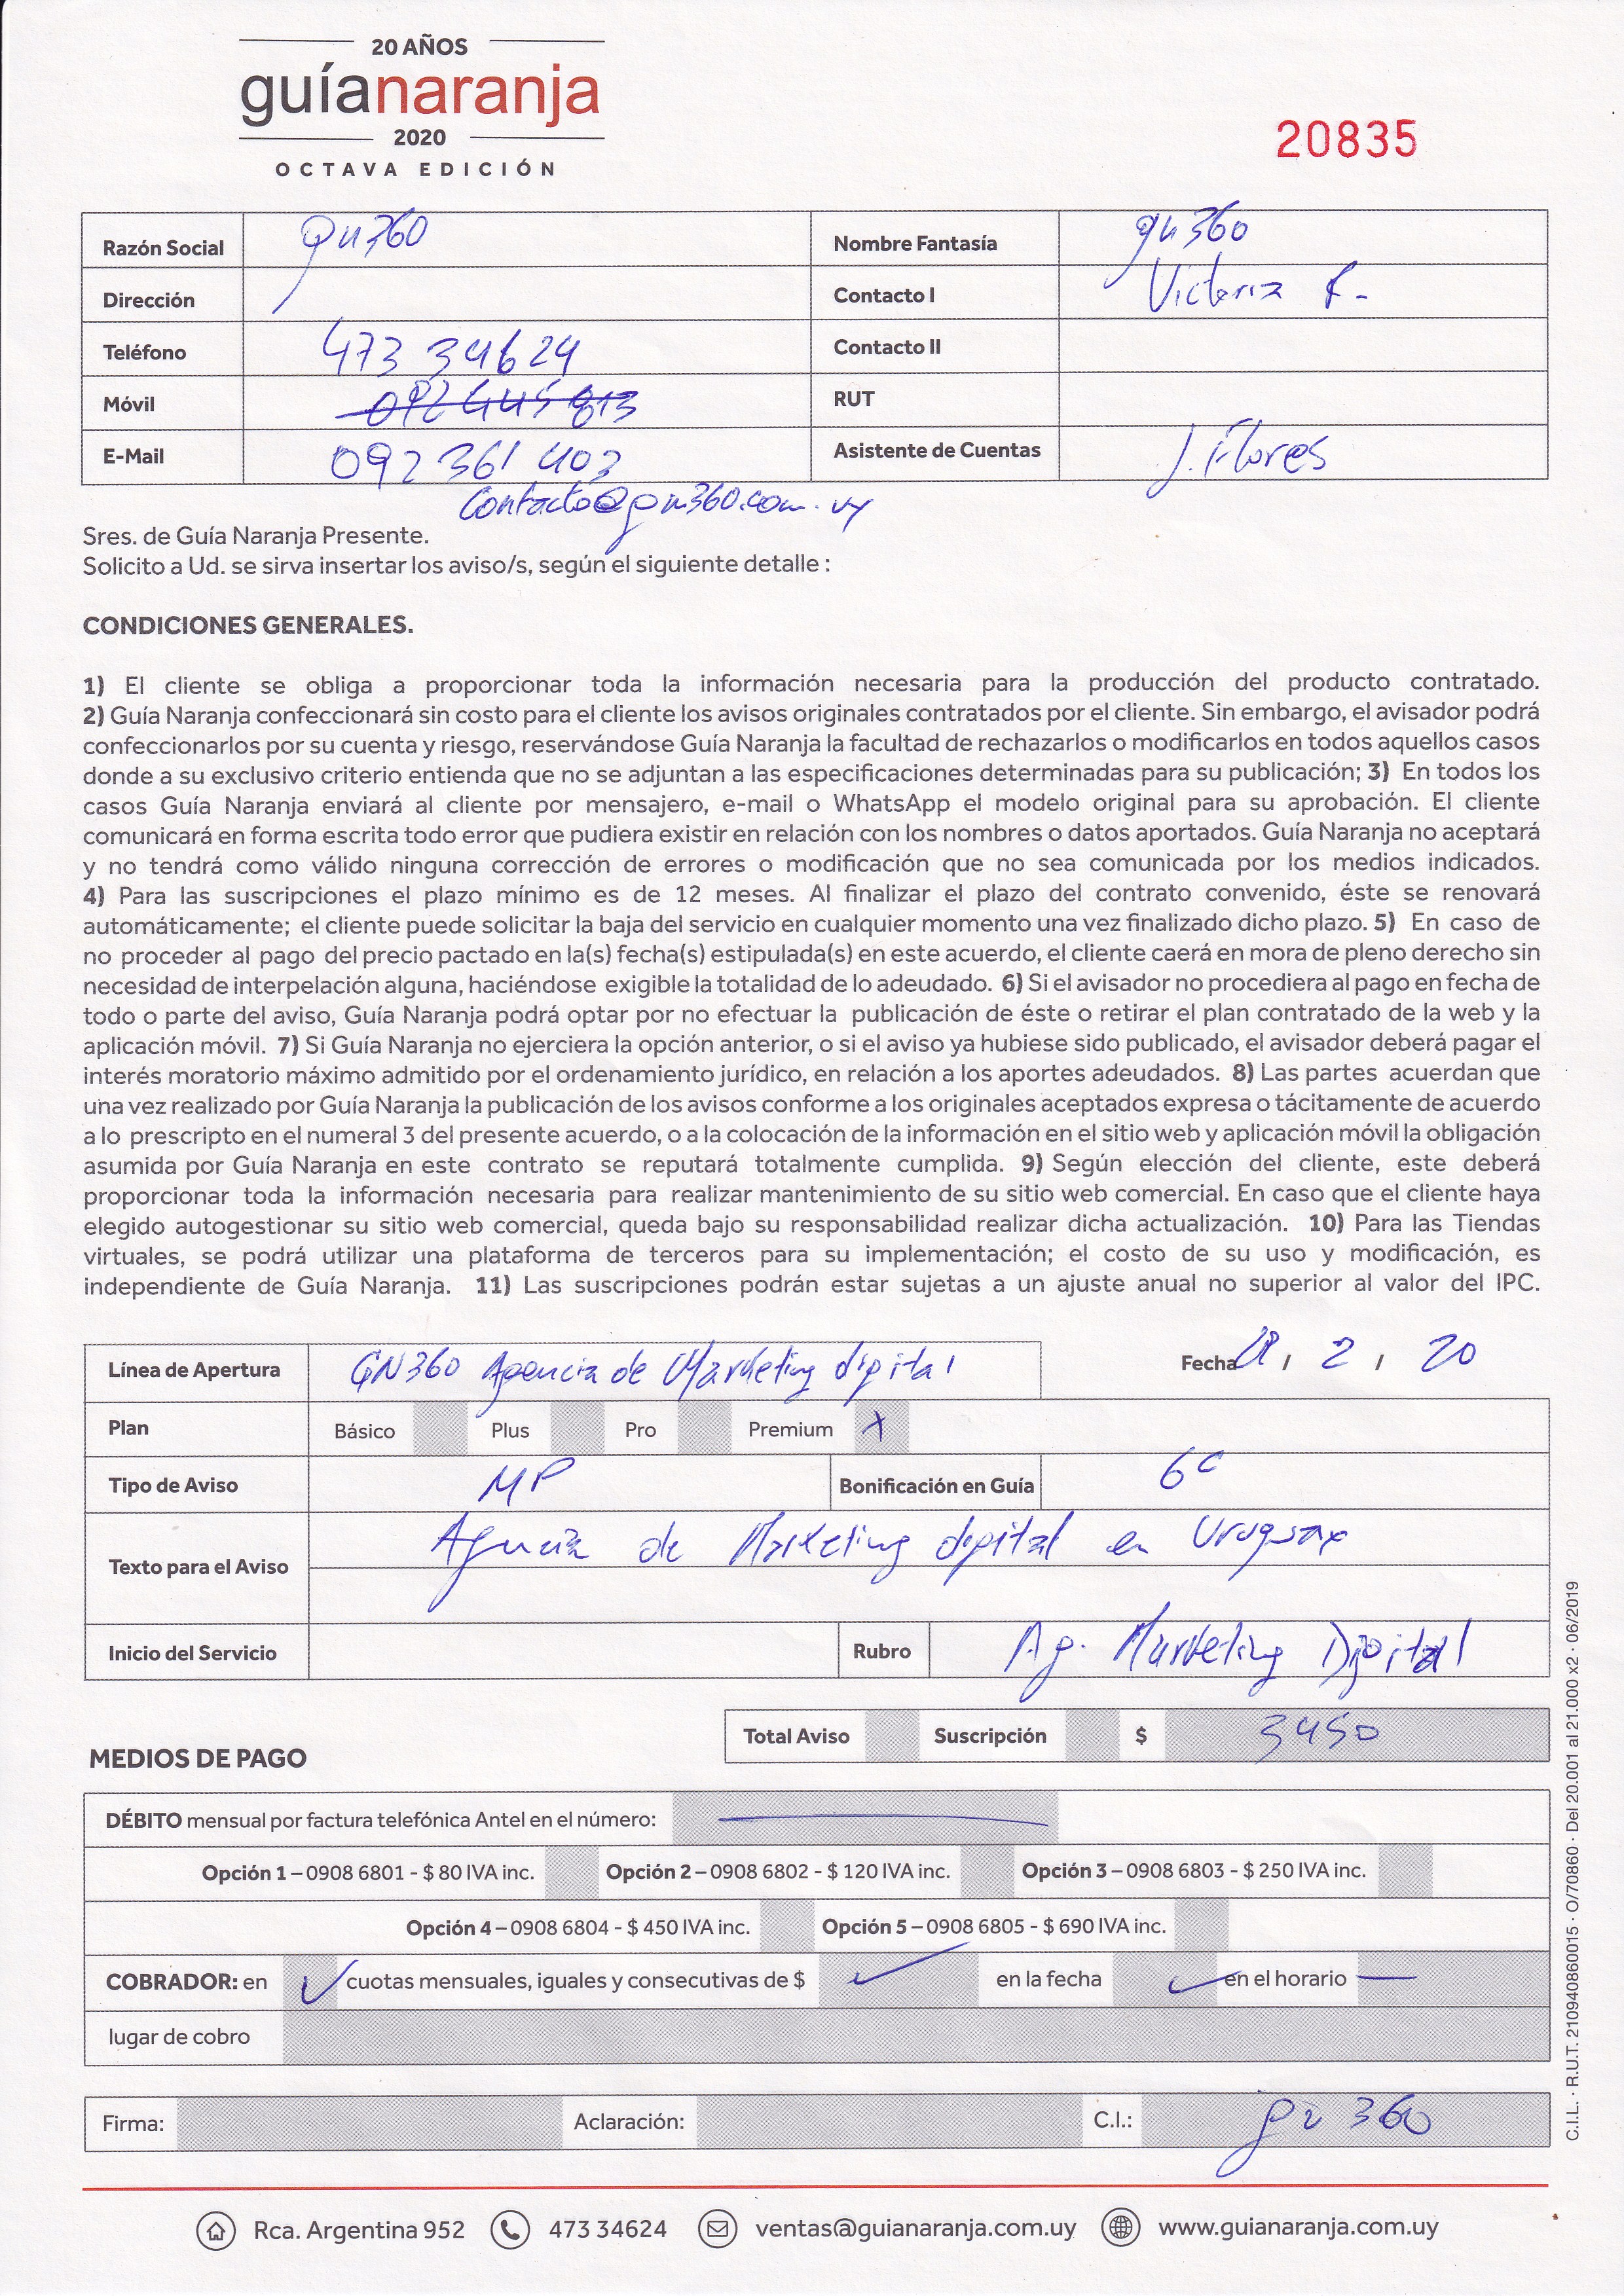 20 AÑOS
guíanaranja
2020
OCTAVA EDICIÓN
20835
Razón Social gn360 Nombre Fantasía gn360
Dirección Contacto I Victoria F.
Teléfono 473 34624 Contacto II
Móvil RUT
E-Mail 092 361 403 Asistente de Cuentas J. Flores
Contacto@gn360.com.uy
Sres. de Guía Naranja Presente.
Solicito a Ud. se sirva insertar los aviso/s, según el siguiente detalle :
CONDICIONES GENERALES.
1) El cliente se obliga a proporcionar toda la información necesaria para la producción del producto contratado.
2) Guía Naranja confeccionará sin costo para el cliente los avisos originales contratados por el cliente. Sin embargo, el avisador podrá
confeccionarlos por su cuenta y riesgo, reservándose Guía Naranja la facultad de rechazarlos o modificarlos en todos aquellos casos
donde a su exclusivo criterio entienda que no se adjuntan a las especificaciones determinadas para su publicación; 3) En todos los
casos Guía Naranja enviará al cliente por mensajero, e-mail o WhatsApp el modelo original para su aprobación. El cliente
comunicará en forma escrita todo error que pudiera existir en relación con los nombres o datos aportados. Guía Naranja no aceptará
y no tendrá como válido ninguna corrección de errores o modificación que no sea comunicada por los medios indicados.
4) Para las suscripciones el plazo mínimo es de 12 meses. Al finalizar el plazo del contrato convenido, éste se renovará
automáticamente; el cliente puede solicitar la baja del servicio en cualquier momento una vez finalizado dicho plazo. 5) En caso de
no proceder al pago del precio pactado en la(s) fecha(s) estipulada(s) en este acuerdo, el cliente caerá en mora de pleno derecho sin
necesidad de interpelación alguna, haciéndose exigible la totalidad de lo adeudado. 6) Si el avisador no procediera al pago en fecha de
todo o parte del aviso, Guía Naranja podrá optar por no efectuar la publicación de éste o retirar el plan contratado de la web y la
aplicación móvil. 7) Si Guía Naranja no ejerciera la opción anterior, o si el aviso ya hubiese sido publicado, el avisador deberá pagar el
interés moratorio máximo admitido por el ordenamiento jurídico, en relación a los aportes adeudados. 8) Las partes acuerdan que
una vez realizado por Guía Naranja la publicación de los avisos conforme a los originales aceptados expresa o tácitamente de acuerdo
a lo prescripto en el numeral 3 del presente acuerdo, o a la colocación de la información en el sitio web y aplicación móvil la obligación
asumida por Guía Naranja en este contrato se reputará totalmente cumplida. 9) Según elección del cliente, este deberá
proporcionar toda la información necesaria para realizar mantenimiento de su sitio web comercial. En caso que el cliente haya
elegido autogestionar su sitio web comercial, queda bajo su responsabilidad realizar dicha actualización. 10) Para las Tiendas
virtuales, se podrá utilizar una plataforma de terceros para su implementación; el costo de su uso y modificación, es
independiente de Guía Naranja. 11) Las suscripciones podrán estar sujetas a un ajuste anual no superior al valor del IPC.
Línea de Apertura GN360 Agencia de Marketing digital Fecha / 2 / 20
Plan Básico Plus Pro Premium X
Tipo de Aviso MP Bonificación en Guía 6c
Texto para el Aviso Agencia de Marketing digital en Uruguay
Inicio del Servicio Rubro Ag. Marketing Digital
Total Aviso Suscripción $ 3450
MEDIOS DE PAGO
DÉBITO mensual por factura telefónica Antel en el número:
Opción 1 – 0908 6801 - $ 80 IVA inc. Opción 2 – 0908 6802 - $ 120 IVA inc. Opción 3 – 0908 6803 - $ 250 IVA inc.
Opción 4 – 0908 6804 - $ 450 IVA inc. Opción 5 – 0908 6805 - $ 690 IVA inc.
COBRADOR: en cuotas mensuales, iguales y consecutivas de $ en la fecha en el horario
lugar de cobro
Firma: Aclaración: C.I.: gn 360
Rca. Argentina 952 473 34624 ventas@guianaranja.com.uy www.guianaranja.com.uy
C.I.L. · R.U.T. 210940860015 · O/70860 · Del 20.001 al 21.000 x2 · 06/2019